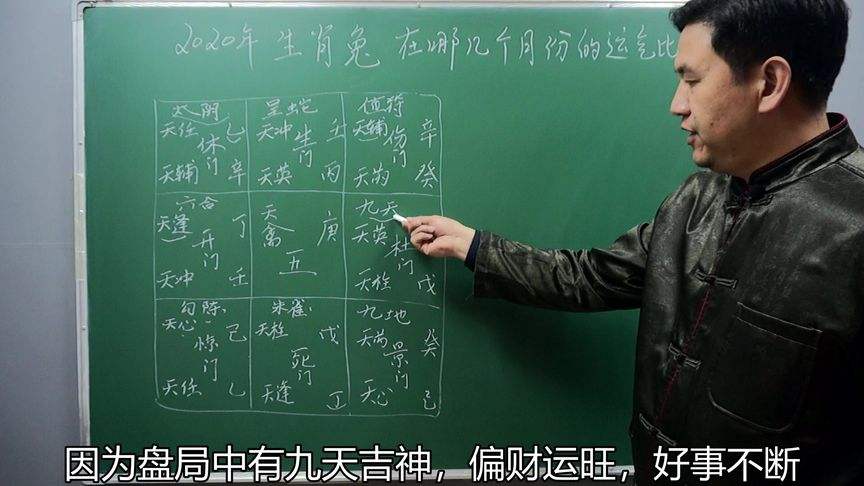 2020年 生肖兔 在哪几个月份的运气比
太阴
天任 乙
休门
天辅 辛
呈蛇
天冲 壬
生门
天英 丙
值符
天辅 辛
伤门
天芮 癸
六合
天蓬 丁
开门
天冲 壬
天禽 庚
五
九天
天英
杜门
天柱 戊
勾陈
天心 己
惊门
天任 乙
朱雀
天柱 戊
死门
天蓬 丁
九地
天芮 癸
景门
天心 己
因为盘局中有九天吉神，偏财运旺，好事不断